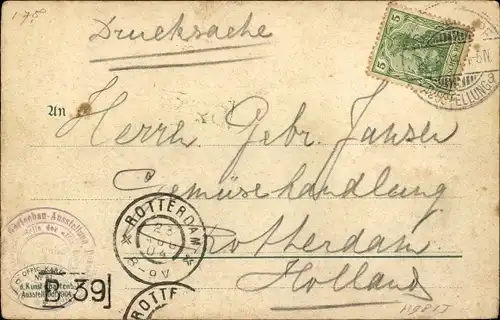 Drucksache
5 5
AUSSTELLUNG
An
Herrn Gebr. Jansen
Gemüsehandlung
Rotterdam
Holland
ROTTERDAM
23
04
8-9V
Gartenbau-Ausstellung
OFFIC
d. Kunst
Ausstell 1904
B.39
ROTTE